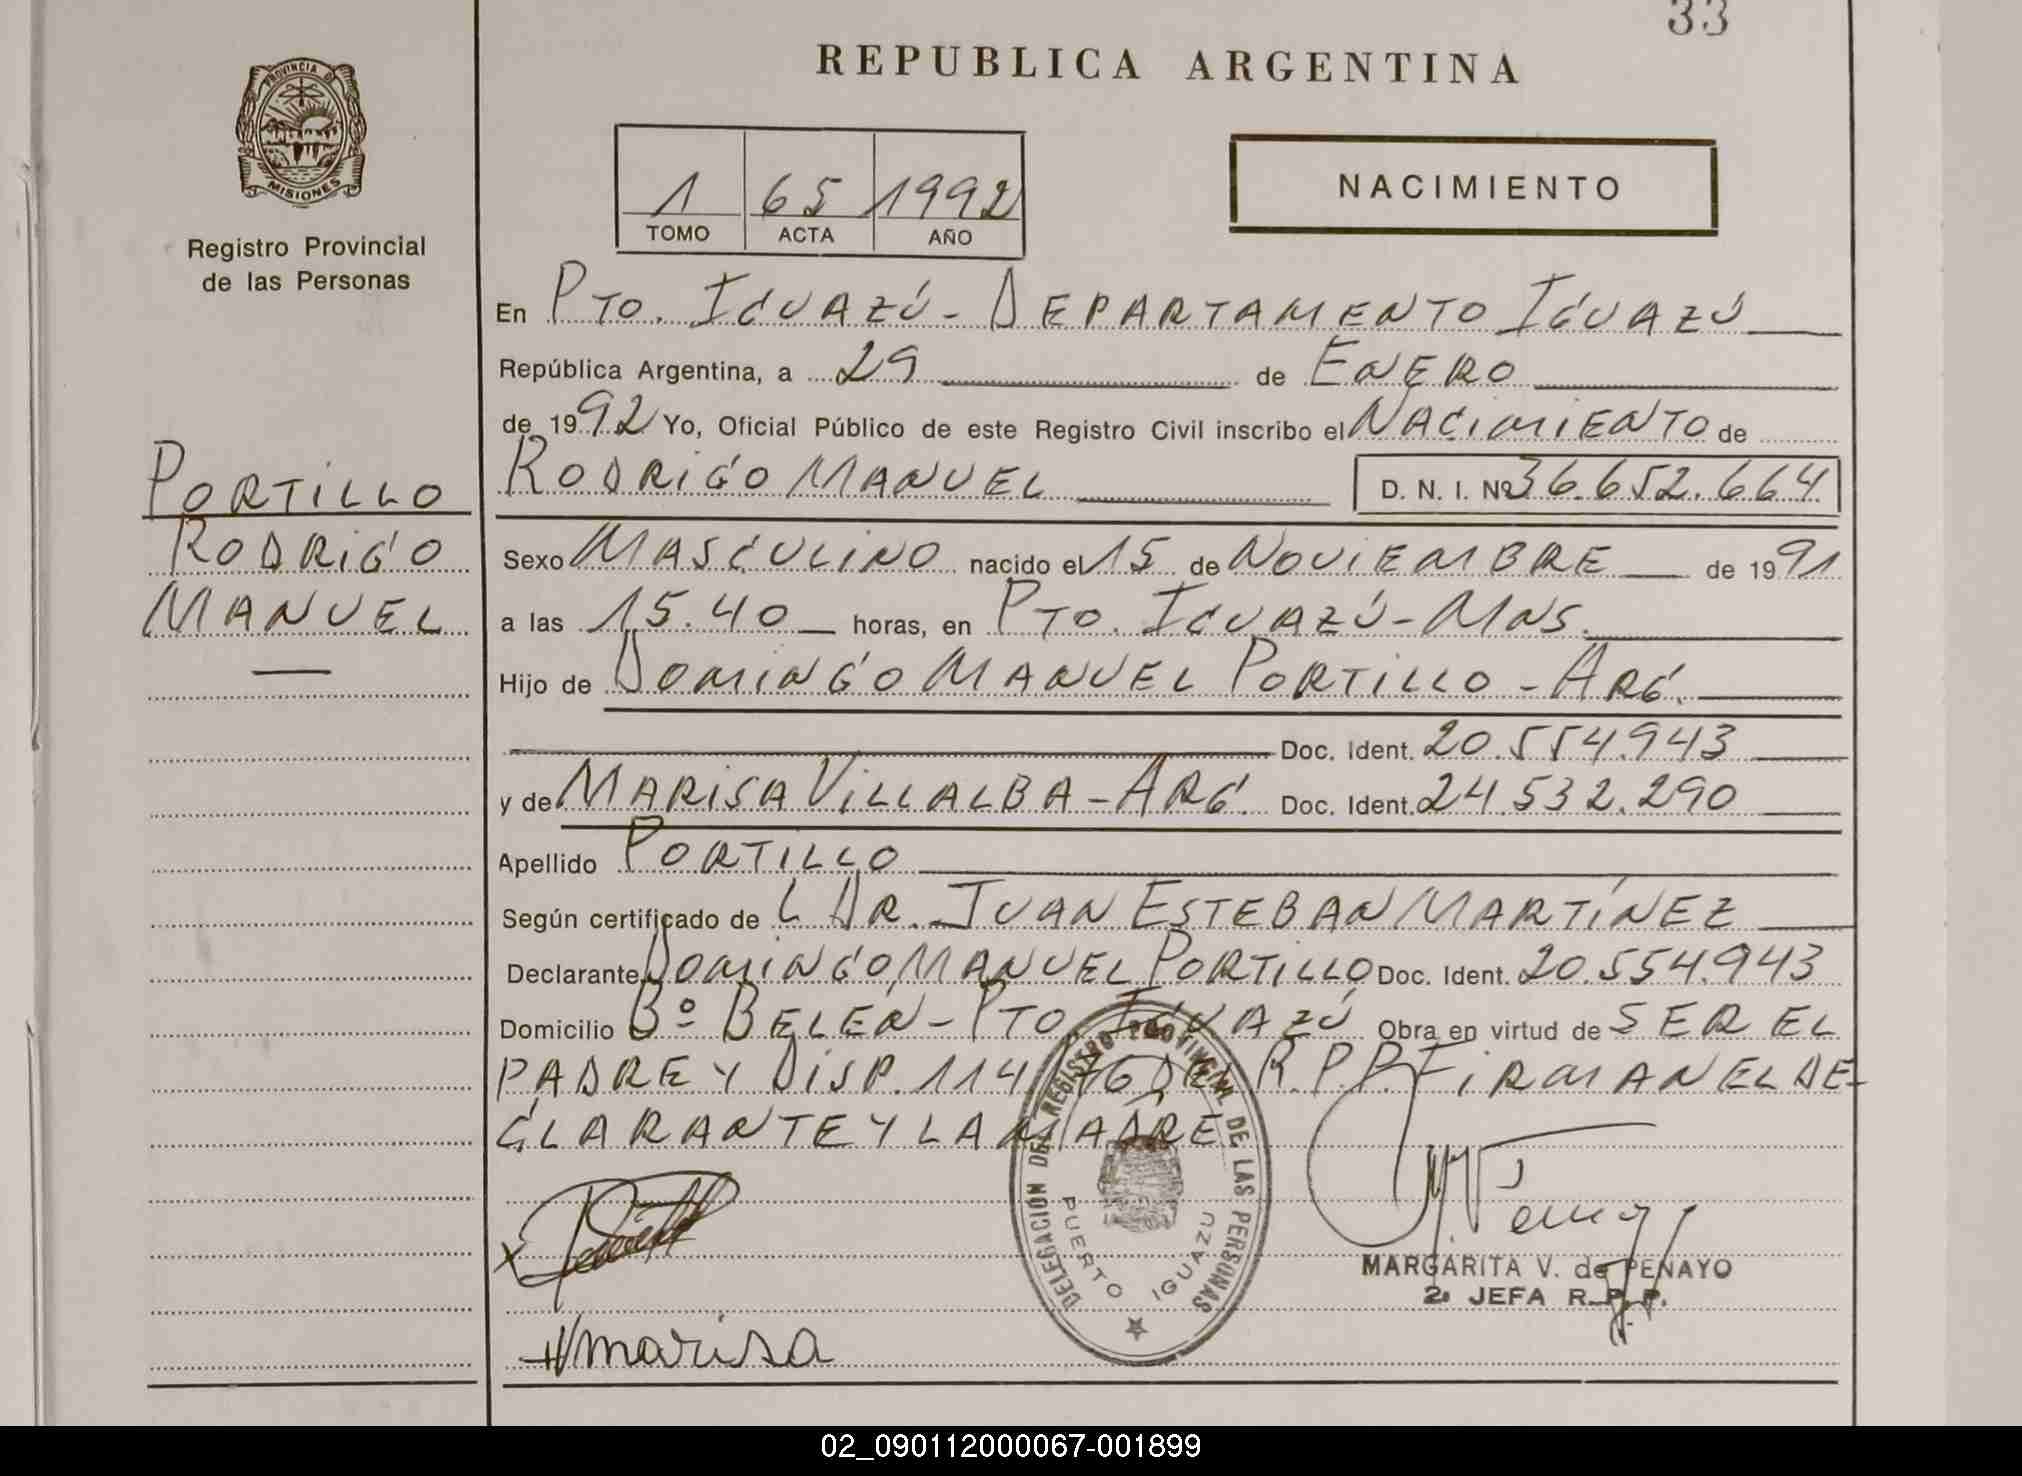 33
REPUBLICA ARGENTINA
PROVINCIA D
MISIONES
Registro Provincial
de las Personas
1 65 1992
TOMO ACTA AÑO
NACIMIENTO
PORTILLO
RODRIGO
MANUEL
En PTO. IGUAZÚ - DEPARTAMENTO IGUAZÚ
República Argentina, a 29 de ENERO
de 1992 Yo, Oficial Público de este Registro Civil inscribo el NACIMIENTO de
RODRIGO MANUEL D. N. I. Nº 36.652.664
Sexo MASCULINO nacido el 15 de NOVIEMBRE de 1991
a las 15.40 horas, en PTO. IGUAZÚ - MNS.
Hijo de DOMINGO MANUEL PORTILLO - ARG.
Doc. Ident. 20.554.943
y de MARISA VILLALBA - ARG. Doc. Ident. 24.532.290
Apellido PORTILLO
Según certificado de L DR. JUAN ESTEBAN MARTÍNEZ
Declarante DOMINGO MANUEL PORTILLO Doc. Ident. 20.554.943
Domicilio Bº BELÉN - PTO. IGUAZÚ Obra en virtud de SER EL
PADRE Y DISP. 114/76 DEL R.P.P. FIRMAN EL DE-
CLARANTE Y LA MADRE
DELEGACIÓN DEL REGISTRO PROVINCIAL DE LAS PERSONAS
PUERTO IGUAZU
MARGARITA V. de PENAYO
2ª JEFA R.P.P.
marisa
02_090112000067-001899